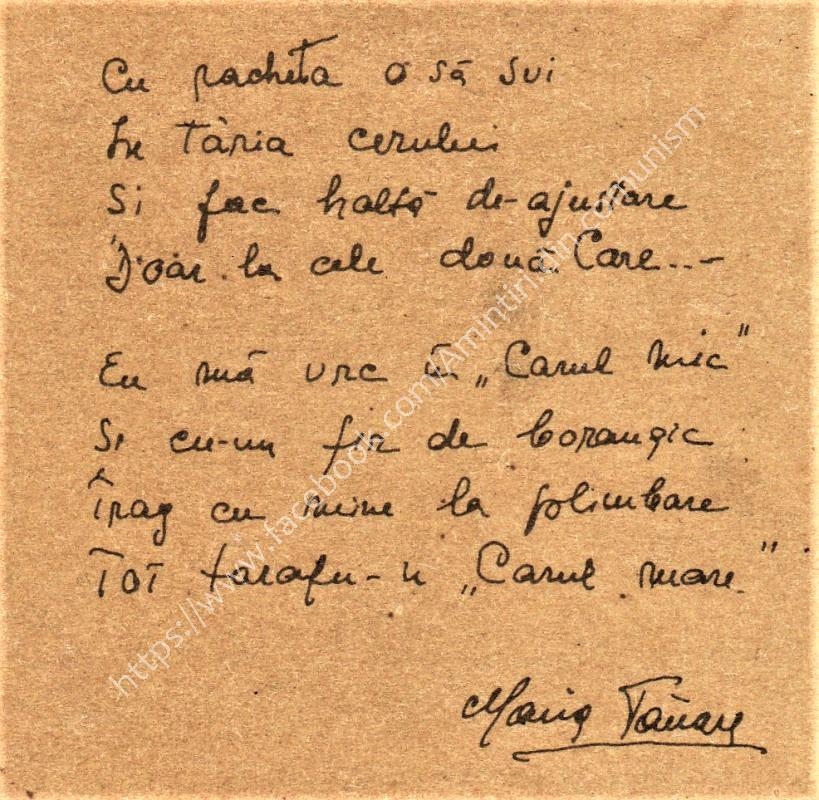 Cu racheta o să sui
În tăria cerului
Si fac haltă de-ajustare
Doar la cele două Care...-
Eu mă urc în „Carul mic”
Si cu-un fir de borangic
Trag cu mine la plimbare
Tot tarafu-n „Carul mare”
Maria Tănase
https://www.facebook.com/Amintiridincomunism